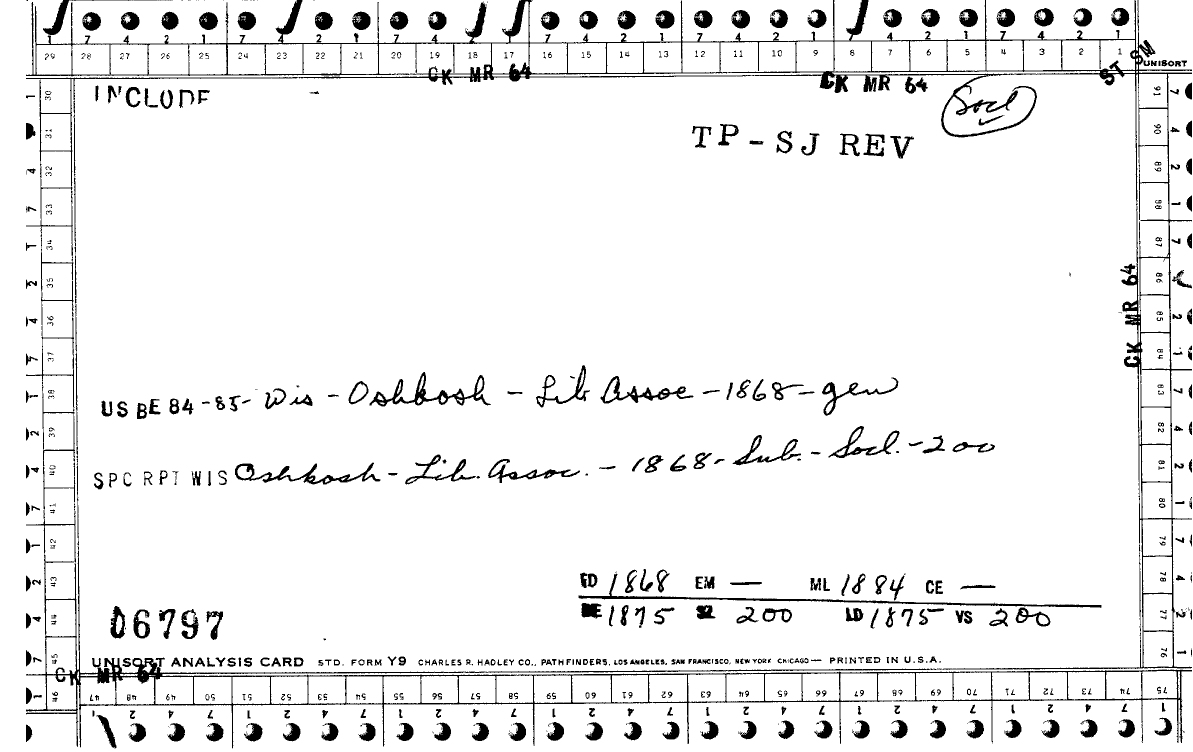 7 4 2 1 7 4 2 1 7 4 2 1 7 4 2 1 7 4 2 1 7 4 2 1 7 4 2 1
29 28 27 26 25 24 23 22 21 20 19 18 17 16 15 14 13 12 11 10 9 8 7 6 5 4 3 2 1
CK MR 64 CK MR 64 ST SM UNISORT
INCLUDE
Socl
TP-SJ REV
CK MR 64
US BE 84-85- Wis - Oshkosh - Lib Assoc - 1868 - gen
SPC RPT WIS Oshkosh - Lib. Assoc. - 1868 - Sub. - Socl. - 200
FD 1868 EM — ML 1884 CE —
BE 1875 SZ 200 LD 1875 VS 200
06797
UNISORT ANALYSIS CARD STD. FORM Y9 CHARLES R. HADLEY CO., PATHFINDERS, LOS ANGELES, SAN FRANCISCO, NEW YORK CHICAGO — PRINTED IN U.S.A.
CK MR 64
30 31 32 33 34 35 36 37 38 39 40 41 42 43 44 45 46
91 90 89 88 87 86 85 84 83 82 81 80 79 78 77 76
47 48 49 50 51 52 53 54 55 56 57 58 59 60 61 62 63 64 65 66 67 68 69 70 71 72 73 74 75